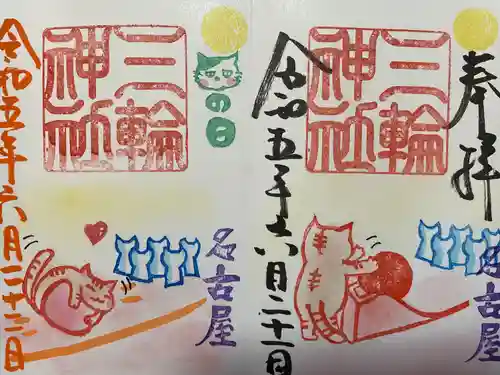 奉拝
三輪
神社
名古屋
令和五年六月二十二日
の日
三輪
神社
名古屋
令和五年六月二十二日